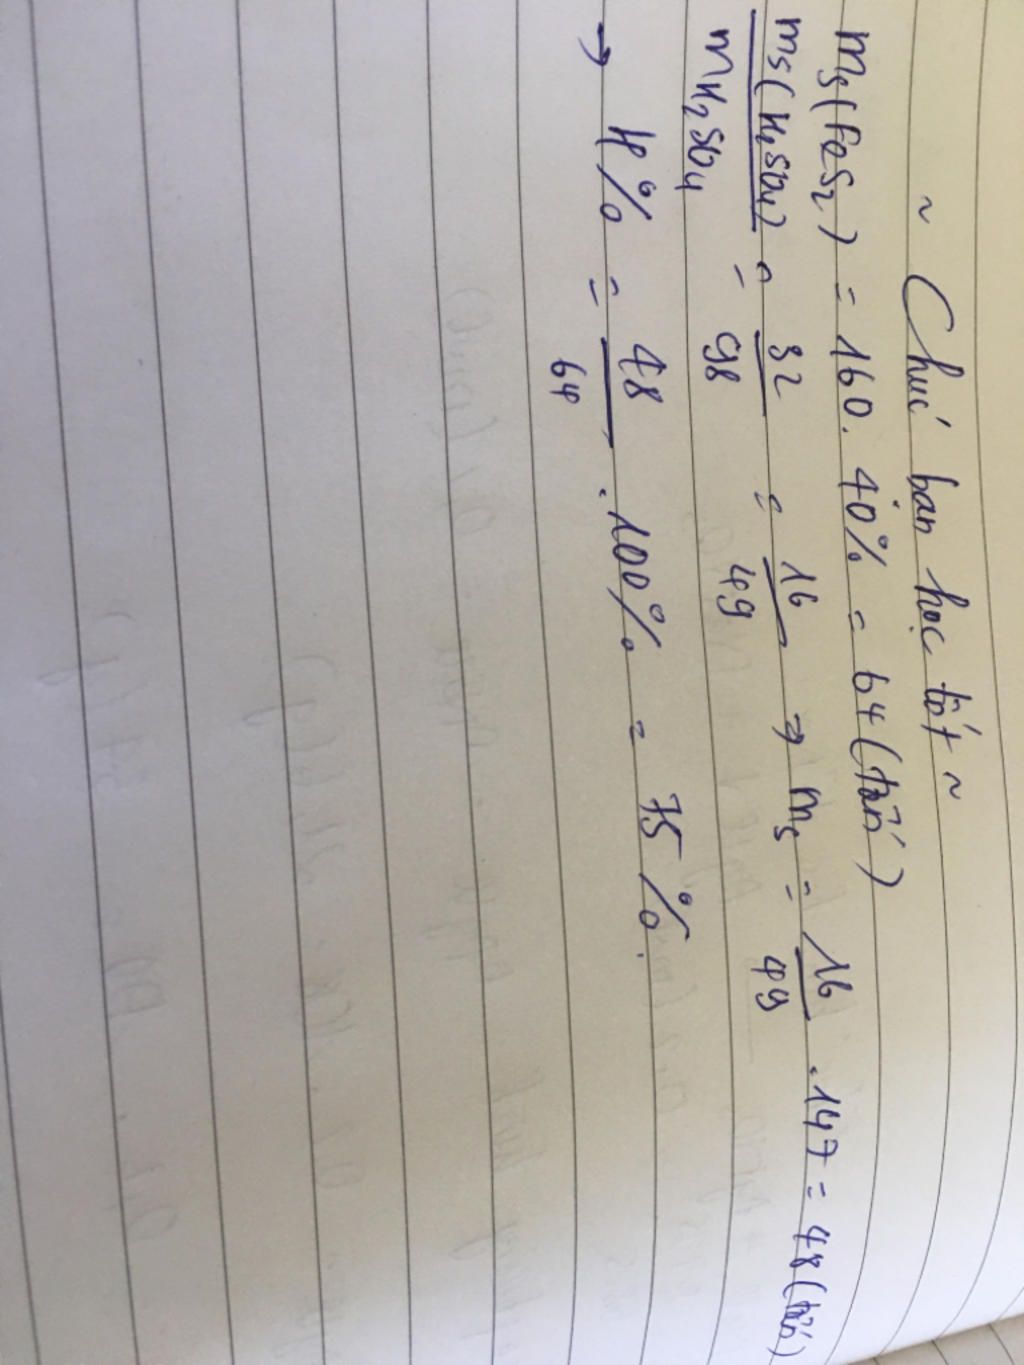 ~ Chúc bạn học tốt ~
mS(FeS2) = 160. 40% = 64 (tấn)
mS(H2SO4) / mH2SO4 = 32/98 = 16/49 => mS = 16/49 .147 = 48 (tấn)
→ H% = 48/64 .100% = 75%.